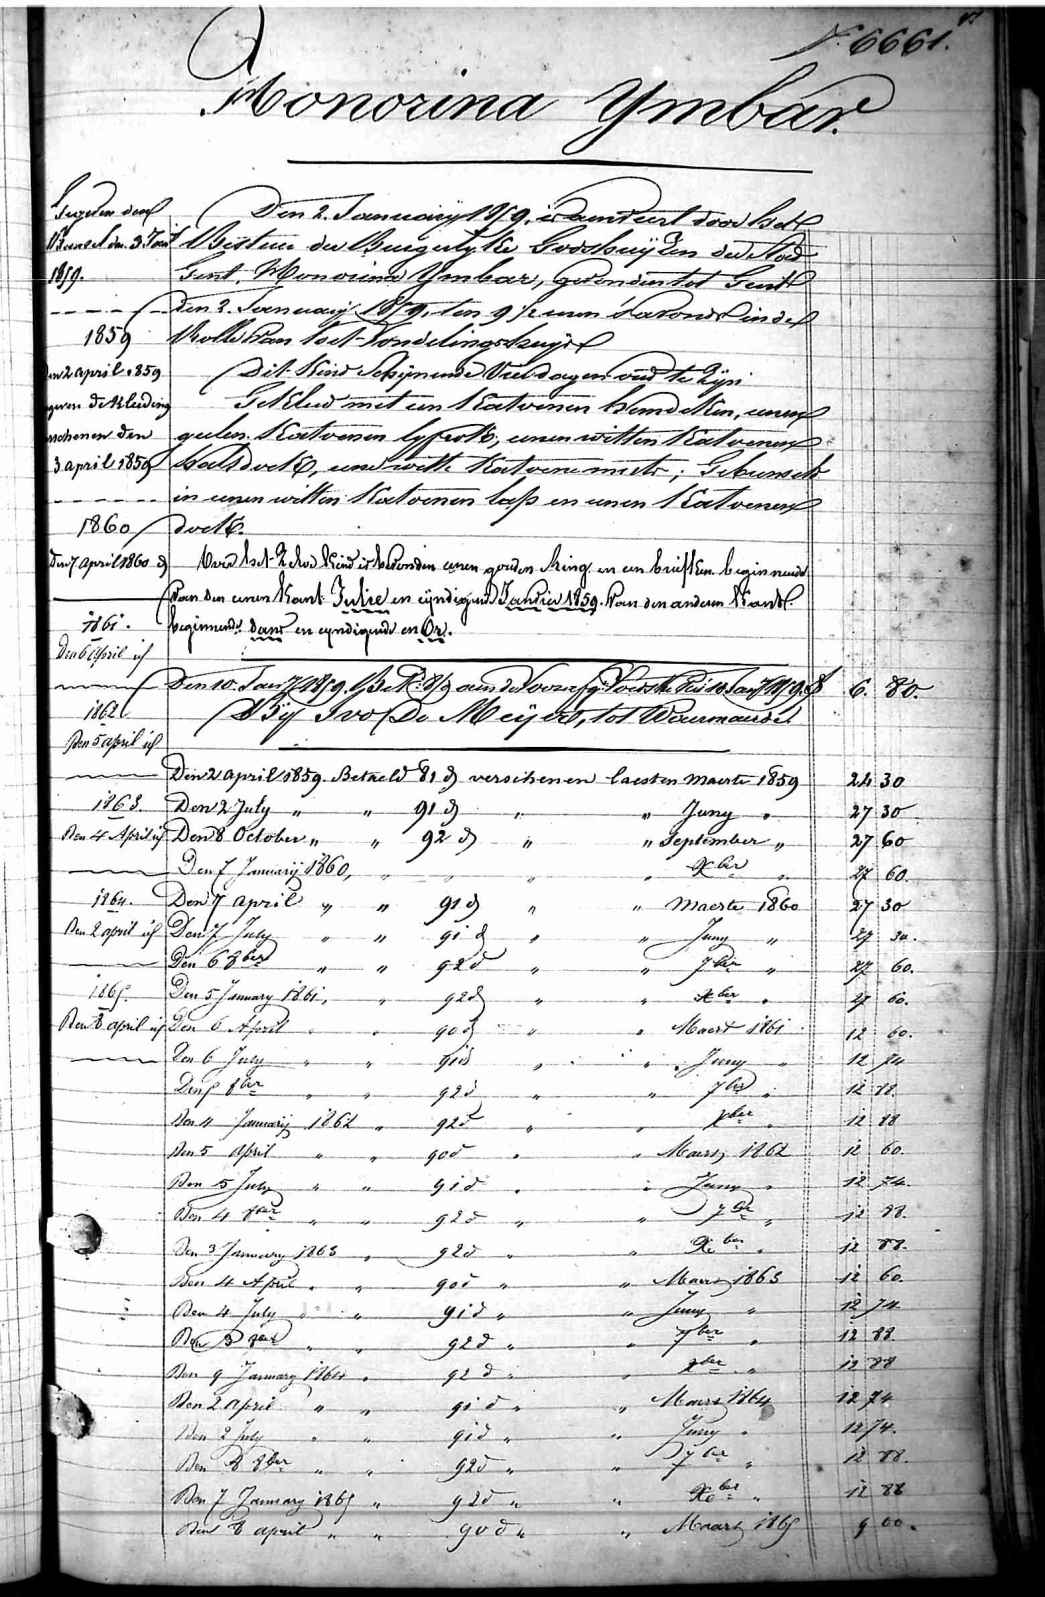 N.° 6661.
Honorina Ymbar.
Den 2. Januarij 1859, is aenveert door het
Bestuer der Burgerlyke Godshuijzen der Stad
Gent, Honorina Ymbar, gevonden tot Gent
den 2. Januarij 1859, ten 9 1/2 uren s'avonds in de
Rolle van het Vondelingshuijs
Dit kind schijnende vier dagen oud te zijn
Gekleed met een katoenen hemdeken, eenen
geelen katoenen lyfrok, eenen witten katoenen
halsdoek, eene witte katoene muts; Gebunseld
in eenen witten katoenen lap en eenen katoenen
doek.
Over het kind is bevonden eenen gouden Ring en een briefken beginnende
van den eenen kant Julie en eyndigende Janvier 1859. Van den anderen kant
beginnende dans en eyndigende en Or.
Den 10. Jan.y 1859. 10 Jan.y 1859. 6. 80.
Bij Ivo De Meijer, tot Waermaerde
Den 2 april 1859. Betaeld 81 d verschenen laesten Maerte 1859 24 30
Den 2 July " " 91 d " " Juny " 27 30
Den 8 October " " 92 d " " September " 27 60
Den 7 Januarij 1860, " " " " Xber " 27 60.
Den 7 april " " 91 d " " Maerte 1860 27 30
Den 7 July " " 91 d " " Juny " 27 30.
Den 6 8ber " " 92 d " " 7ber " 27 60.
Den 5 January 1861, " 92 d " " Xber " 27 60.
Den 6 April " " 90 d " " Maert 1861 12 60.
Den 6 July " " 91 d " " Juny " 12 74
Den 5 8ber " " 92 d " " 7ber " 12 88
Den 4 Januarij 1862 " 92 d " " Xber " 12 88
Den 5 April " " 90 d " " Maers 1862 12 60.
Den 5 July " " 91 d " " Juny " 12 74.
Den 4 8ber " " 92 d " " 7ber " 12 88.
Den 3 January 1863 " 92 d " " Xber " 12 88.
Den 4 April " " 90 d " " Maers 1863 12 60.
Den 4 July " " 91 d " " Juny " 12 74
Den 3 8ber " " 92 d " " 7ber " 12 88.
Den 9 January 1864 " 92 d " " Xber " 12 88
Den 2 april " " 91 d " " Maers 1864 12 74
Den 2 July " " 91 d " " Juny " 12 74.
Den 8 8ber " " 92 d " " 7ber " 12 88.
Den 7 January 1865 " 92 d " " Xber " 12 88
Den 8 april " " 90 d " " Maars 1865 9 00.
den 3. Jan.
1859.
1859
den 2 april 1859
de kleeding
verschenen den
3 april 1859
1860
Den 7 april 1860 d
1861.
Den 6 april id
1862
Den 5 april id
1863.
Den 4 April id
1864.
Den 2 april id
1865.
Den 8 april id